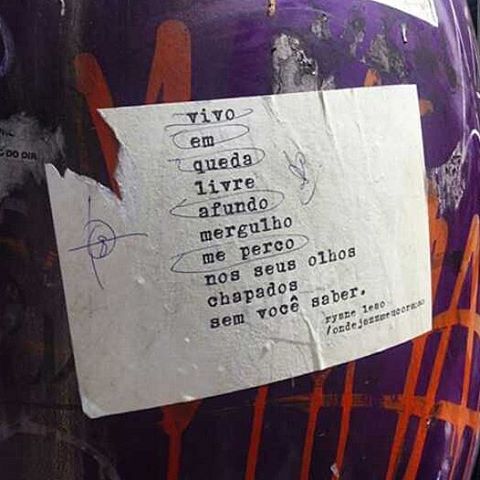 vivo
em
queda
livre
afundo
mergulho
me perco
nos seus olhos
chapados
sem você saber.
ryane leão
/ondejazzmeucoração
DO DIR